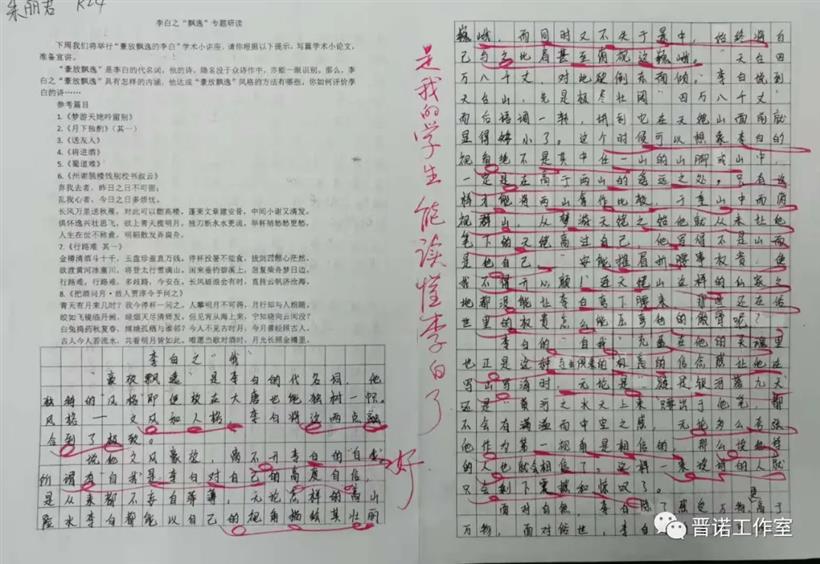 朱丽君 R24
李白之“飘逸”专题研读
下周我们将举行“豪放飘逸的李白”学术小讲座，请你根据以下提示，写篇学术小论文，
准备宣讲。
“豪放飘逸”是李白的代名词，他的诗，隐名没于众诗作中，亦能一眼识别。那么，李
白之“豪放飘逸”具有怎样的内涵，他达成“豪放飘逸”风格的方法有哪些，你如何评价李
白的诗……
参考篇目
1.《梦游天姥吟留别》
2.《月下独酌》（其一）
3.《送友人》
4.《将进酒》
5.《蜀道难》
6.《州谢朓楼饯别校书叔云》
弃我去者，昨日之日不可留；
乱我心者，今日之日多烦忧。
长风万里送秋雁，对此可以酣高楼。蓬莱文章建安骨，中间小谢又清发。
俱怀逸兴壮思飞，欲上青天揽明月。抽刀断水水更流，举杯销愁愁更愁。
人生在世不称意，明朝散发弄扁舟。
7.《行路难 其一》
金樽清酒斗十千，玉盘珍羞直万钱。停杯投箸不能食，拔剑四顾心茫然。
欲渡黄河冰塞川，将登太行雪满山。闲来垂钓碧溪上，忽复乘舟梦日边。
行路难，行路难，多歧路，今安在。长风破浪会有时，直挂云帆济沧海。
8.《把酒问月·故人贾淳令予问之》
青天有月来几时？我今停杯一问之。人攀明月不可得，月行却与人相随。
皎如飞镜临丹阙，绿烟灭尽清辉发。但见宵从海上来，宁知晓向云间没？
白兔捣药秋复春，嫦娥孤栖与谁邻？今人不见古时月，今月曾经照古人。
古人今人若流水，共看明月皆如此。唯愿当歌对酒时，月光长照金樽里。
李白之“我”
“豪放飘逸”是李白的代名词，他
独特的风格即便放在大唐也能独树一帜。
风格——文风和人格，李白将这两点融
合到了极致。
说他文风豪放，离不开李白的“自我”
所谓“自我”是李白对自己的高度自信，
是从来都不妄自菲薄，无论怎样的高山
险水李白都能以自己的视角描绘其壮丽
好
是我的学生能读懂李白了
巍峨，而同时又不失于景中，始终将自
己与之比肩甚至俯视这巍峨。“天台四
万八千丈，对此欲倒东南倾。”李白说到
天台山，先是极尽壮阔“四万八千丈”
而后语调一转，讲到它在天姥山面前就
显得矮小了。这个时候可以想象李白的
视角绝不是其中任一山的山脚或山中，
一定是在高于两山的遥远之处。只有这
样才能将两山客作比较，于重山中而俯
视群山，从梦游天姥之始他就从未让他
笔下的天姥高过自己，他写得不是山而
是他自己。“安能摧眉折腰事权贵，使
我不得开心颜！”连天姥山这样的仙家之
地都没能让李白弯下腰来，
世里的权贵怎么能
李白的“自我”充盈在他的灵魂里
也正是这种 的信念感让他在
写山写海时，无论是“疑是银河落九天”
还是“黄河之水天上来”
不会有满溢而中空之感，无论多么夸张
他作为第一视角是相信的，那么读他诗
的人也就会相信了。这样一来读诗的人就
只会剩下震撼和惊叹了。
面对自然，李白“隐”
万物，面对俗世，李白
晋诺工作室